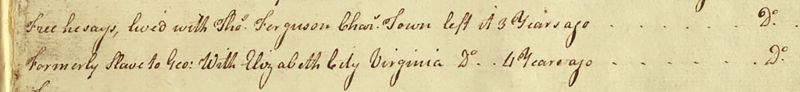 Free he says, lived with Thoˢ. Ferguson Chaˢ. Town left it 3 Years ago . . . . . . . Dº.
Formerly Slave to Geo: With Elizabeth City Virginia Dº. . 4 Years ago . . . . . . . . Dº.